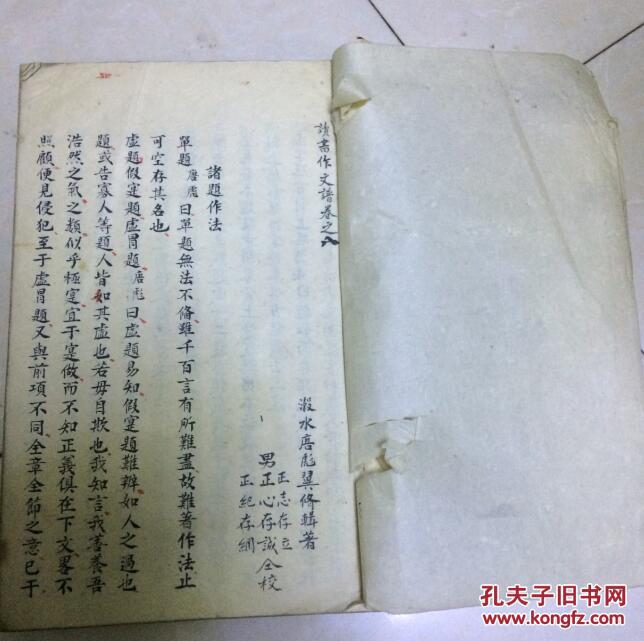 讀書作文譜卷之八
瀔水唐彪翼修輯著
正志存立
男正心存誠仝校
正紀存綱
諸題作法
單題唐彪曰單題無法不備雖千百言有所難盡故難著作法止
可空存其名也
虛題假寔題虛冒題唐彪曰虛題易知假寔題難辨如人之過也
題或告寡人等題人皆知其虛也若毋自欺也我知言我善養吾
浩然之氣之類似乎極寔宜于寔做而不知正義俱在下文畧不
照顧便見侵犯至于虛冒題又與前項不同全章全節之意已于
孔夫子旧书网
www.kongfz.com